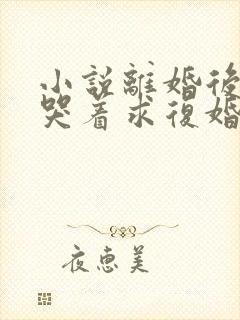 小説離婚後
哭着求復婚
夜恵美